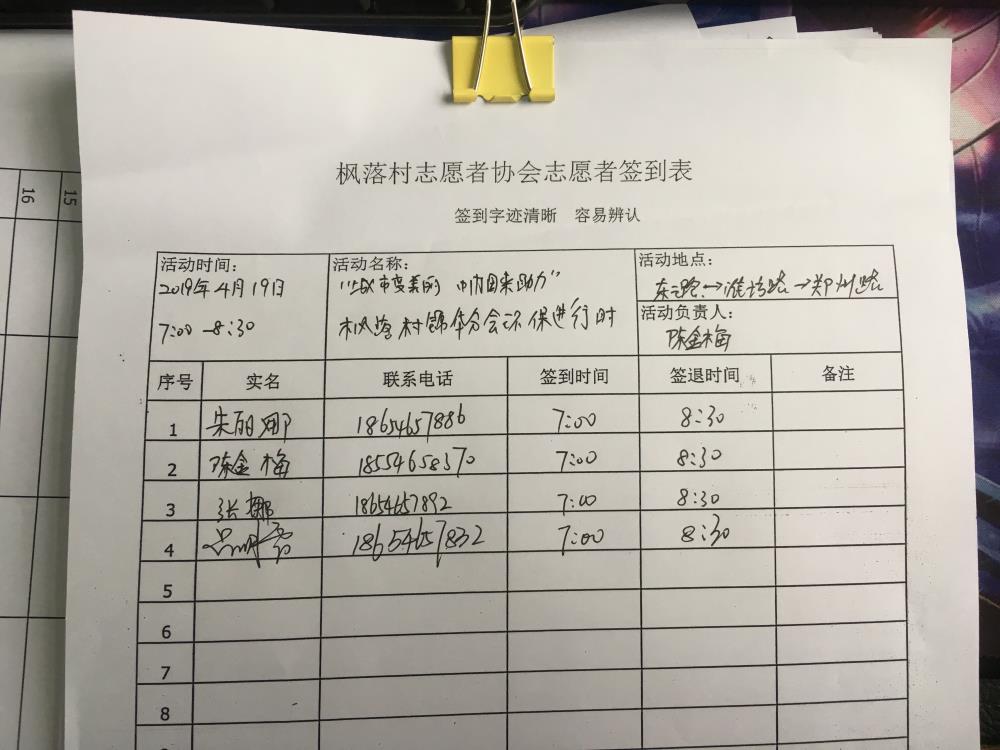 枫落村志愿者协会志愿者签到表
签到字迹清晰 容易辨认
活动时间：
2019年4月19日
7:00-8:30
活动名称：
"城市变美的 巾帼来助力"
枫落村锦华分会环保进行时
活动地点：
东三路→潍坊路→郑州路
活动负责人：
陈金梅
序号 实名 联系电话 签到时间 签退时间 备注
1 朱丽娜 18654657886 7:00 8:30
2 陈金梅 18554658370 7:00 8:30
3 张娜 18654657892 7:00 8:30
4 18654657832 7:00 8:30
5
6
7
8
16
15